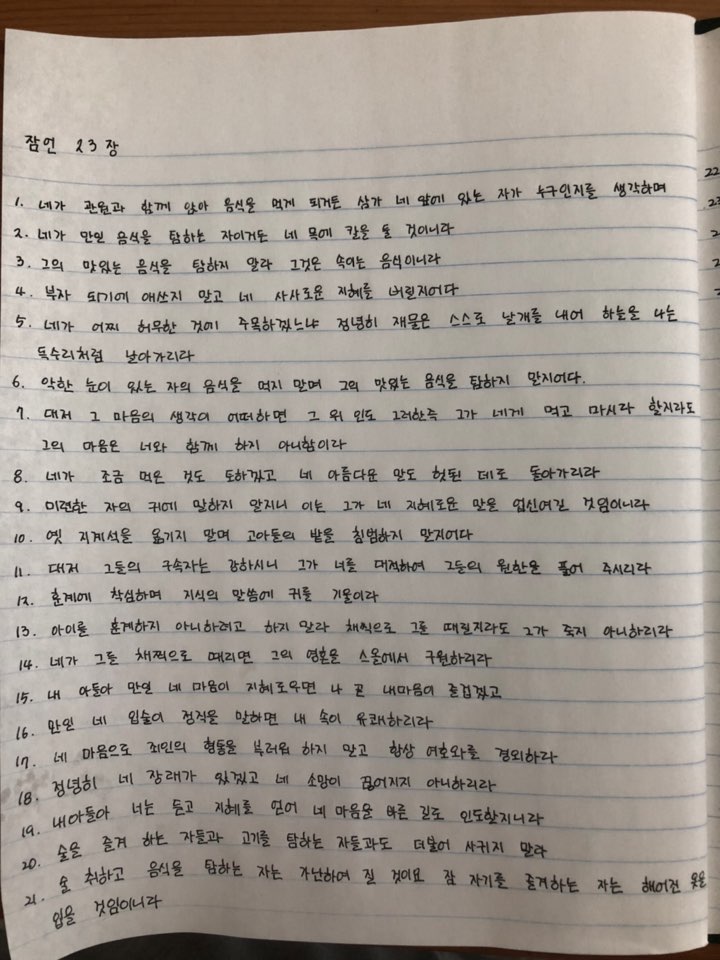 잠언 23장
1. 네가 관원과 함께 앉아 음식을 먹게 되거든 삼가 네 앞에 있는 자가 누구인지를 생각하며
2. 네가 만일 음식을 탐하는 자이거든 네 목에 칼을 둘 것이니라
3. 그의 맛있는 음식을 탐하지 말라 그것은 속이는 음식이니라
4. 부자 되기에 애쓰지 말고 네 사사로운 지혜를 버릴지어다
5. 네가 어찌 허무한 것에 주목하겠느냐 정녕히 재물은 스스로 날개를 내어 하늘을 나는
독수리처럼 날아가리라
6. 악한 눈이 있는 자의 음식을 먹지 말며 그의 맛있는 음식을 탐하지 말지어다.
7. 대저 그 마음의 생각이 어떠하면 그 위 인도 그러한즉 그가 네게 먹고 마시라 할지라도
그의 마음은 너와 함께 하지 아니함이라
8. 네가 조금 먹은 것도 토하겠고 네 아름다운 말도 헛된 데로 돌아가리라
9. 미련한 자의 귀에 말하지 말지니 이는 그가 네 지혜로운 말을 업신여긴 것임이니라
10. 옛 지계석을 옮기지 말며 고아들의 밭을 침범하지 말지어다
11. 대저 그들의 구속자는 강하시니 그가 너를 대적하여 그들의 원한을 풀어 주시리라
12. 훈계에 착심하며 지식의 말씀에 귀를 기울이라
13. 아이를 훈계하지 아니하려고 하지 말라 채찍으로 그를 때릴지라도 그가 죽지 아니하리라
14. 네가 그를 채찍으로 때리면 그의 영혼을 스올에서 구원하리라
15. 내 아들아 만일 네 마음이 지혜로우면 나 곧 내마음이 즐겁겠고
16. 만일 네 입술이 정직을 말하면 내 속이 유쾌하리라
17. 네 마음으로 죄인의 형통을 부러워 하지 말고 항상 여호와를 경외하라
18. 정녕히 네 장래가 있겠고 네 소망이 끊어지지 아니하리라
19. 내아들아 너는 듣고 지혜를 얻어 네 마음을 바른 길로 인도할지니라
20. 술을 즐겨 하는 자들과 고기를 탐하는 자들과도 더불어 사귀지 말라
21. 술 취하고 음식을 탐하는 자는 가난하여 질 것이요 잠 자기를 즐겨하는 자는 해어진 옷을
입을 것임이니라
22
23